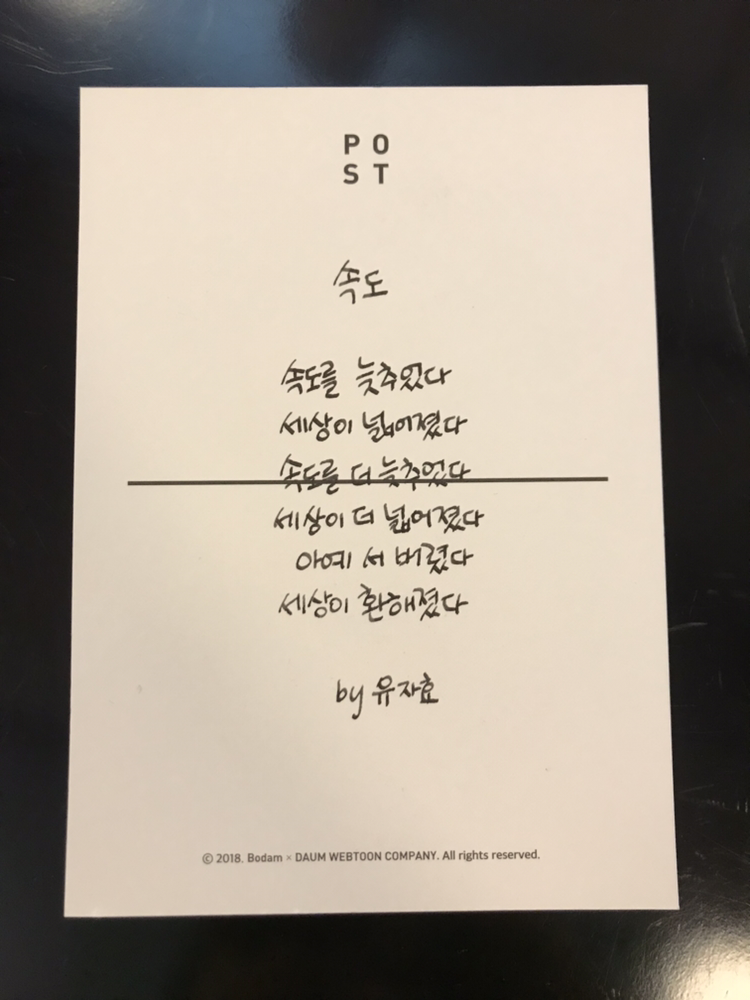 PO
ST
속도
속도를 늦추었다
세상이 넓어졌다
속도를 더 늦추었다
세상이 더 넓어졌다
아예 서 버렸다
세상이 환해졌다
by 유자효
© 2018. Bodam × DAUM WEBTOON COMPANY. All rights reserved.